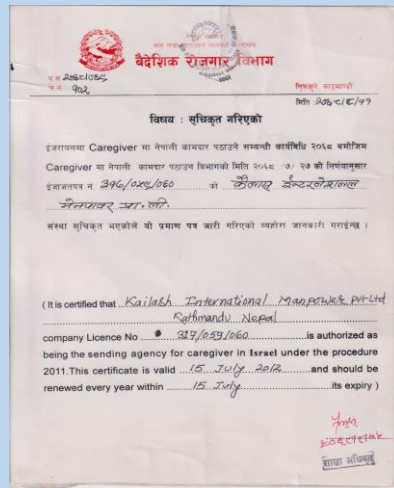 बैदेशिक रोजगार विभाग
मिति :
विषय : सूचिकृत गरिएको
इजरायलमा Caregiver मा नेपाली कामदार पठाउने सम्बन्धी कार्यबिधि २०६८ बमोजिम
Caregiver मा नेपाली कामदार पठाउन विभागको मिति २०६८ ।७।२७ को निर्णयानुसार
ईजाजतपत्र नं को कैलाश ईन्टरनेशनल
मेनपावर प्रा. ली.
संस्था सूचिकृत भएकोले यो प्रमाण पत्र जारी गरिएको व्यहोरा जानकारी गराईन्छ ।
( It is certified that Kailash International Manpower Pvt Ltd
Kathmandu Nepal
company Licence No /059/060 is authorized as
being the sending agency for caregiver in Israel under the procedure
2011.This certificate is valid 15 July 2012 and should be
renewed every year within 15 July its expiry )
शाखा अधिकृत